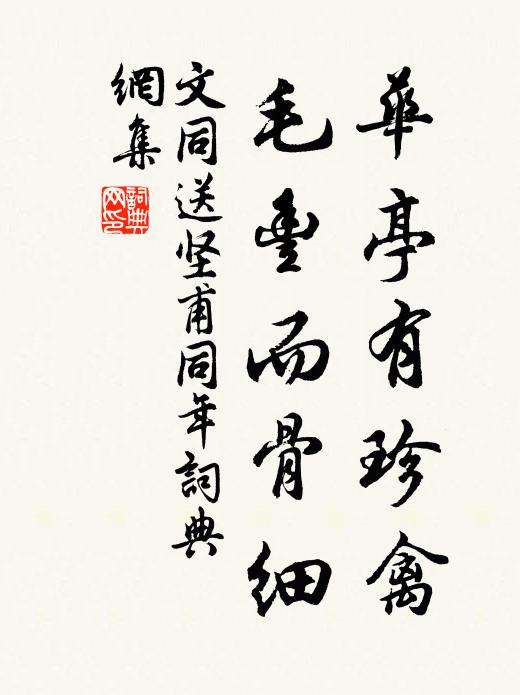 華亭有珍禽
毛豊而骨細
文同送坚甫同年詞典
網集
詞典網印